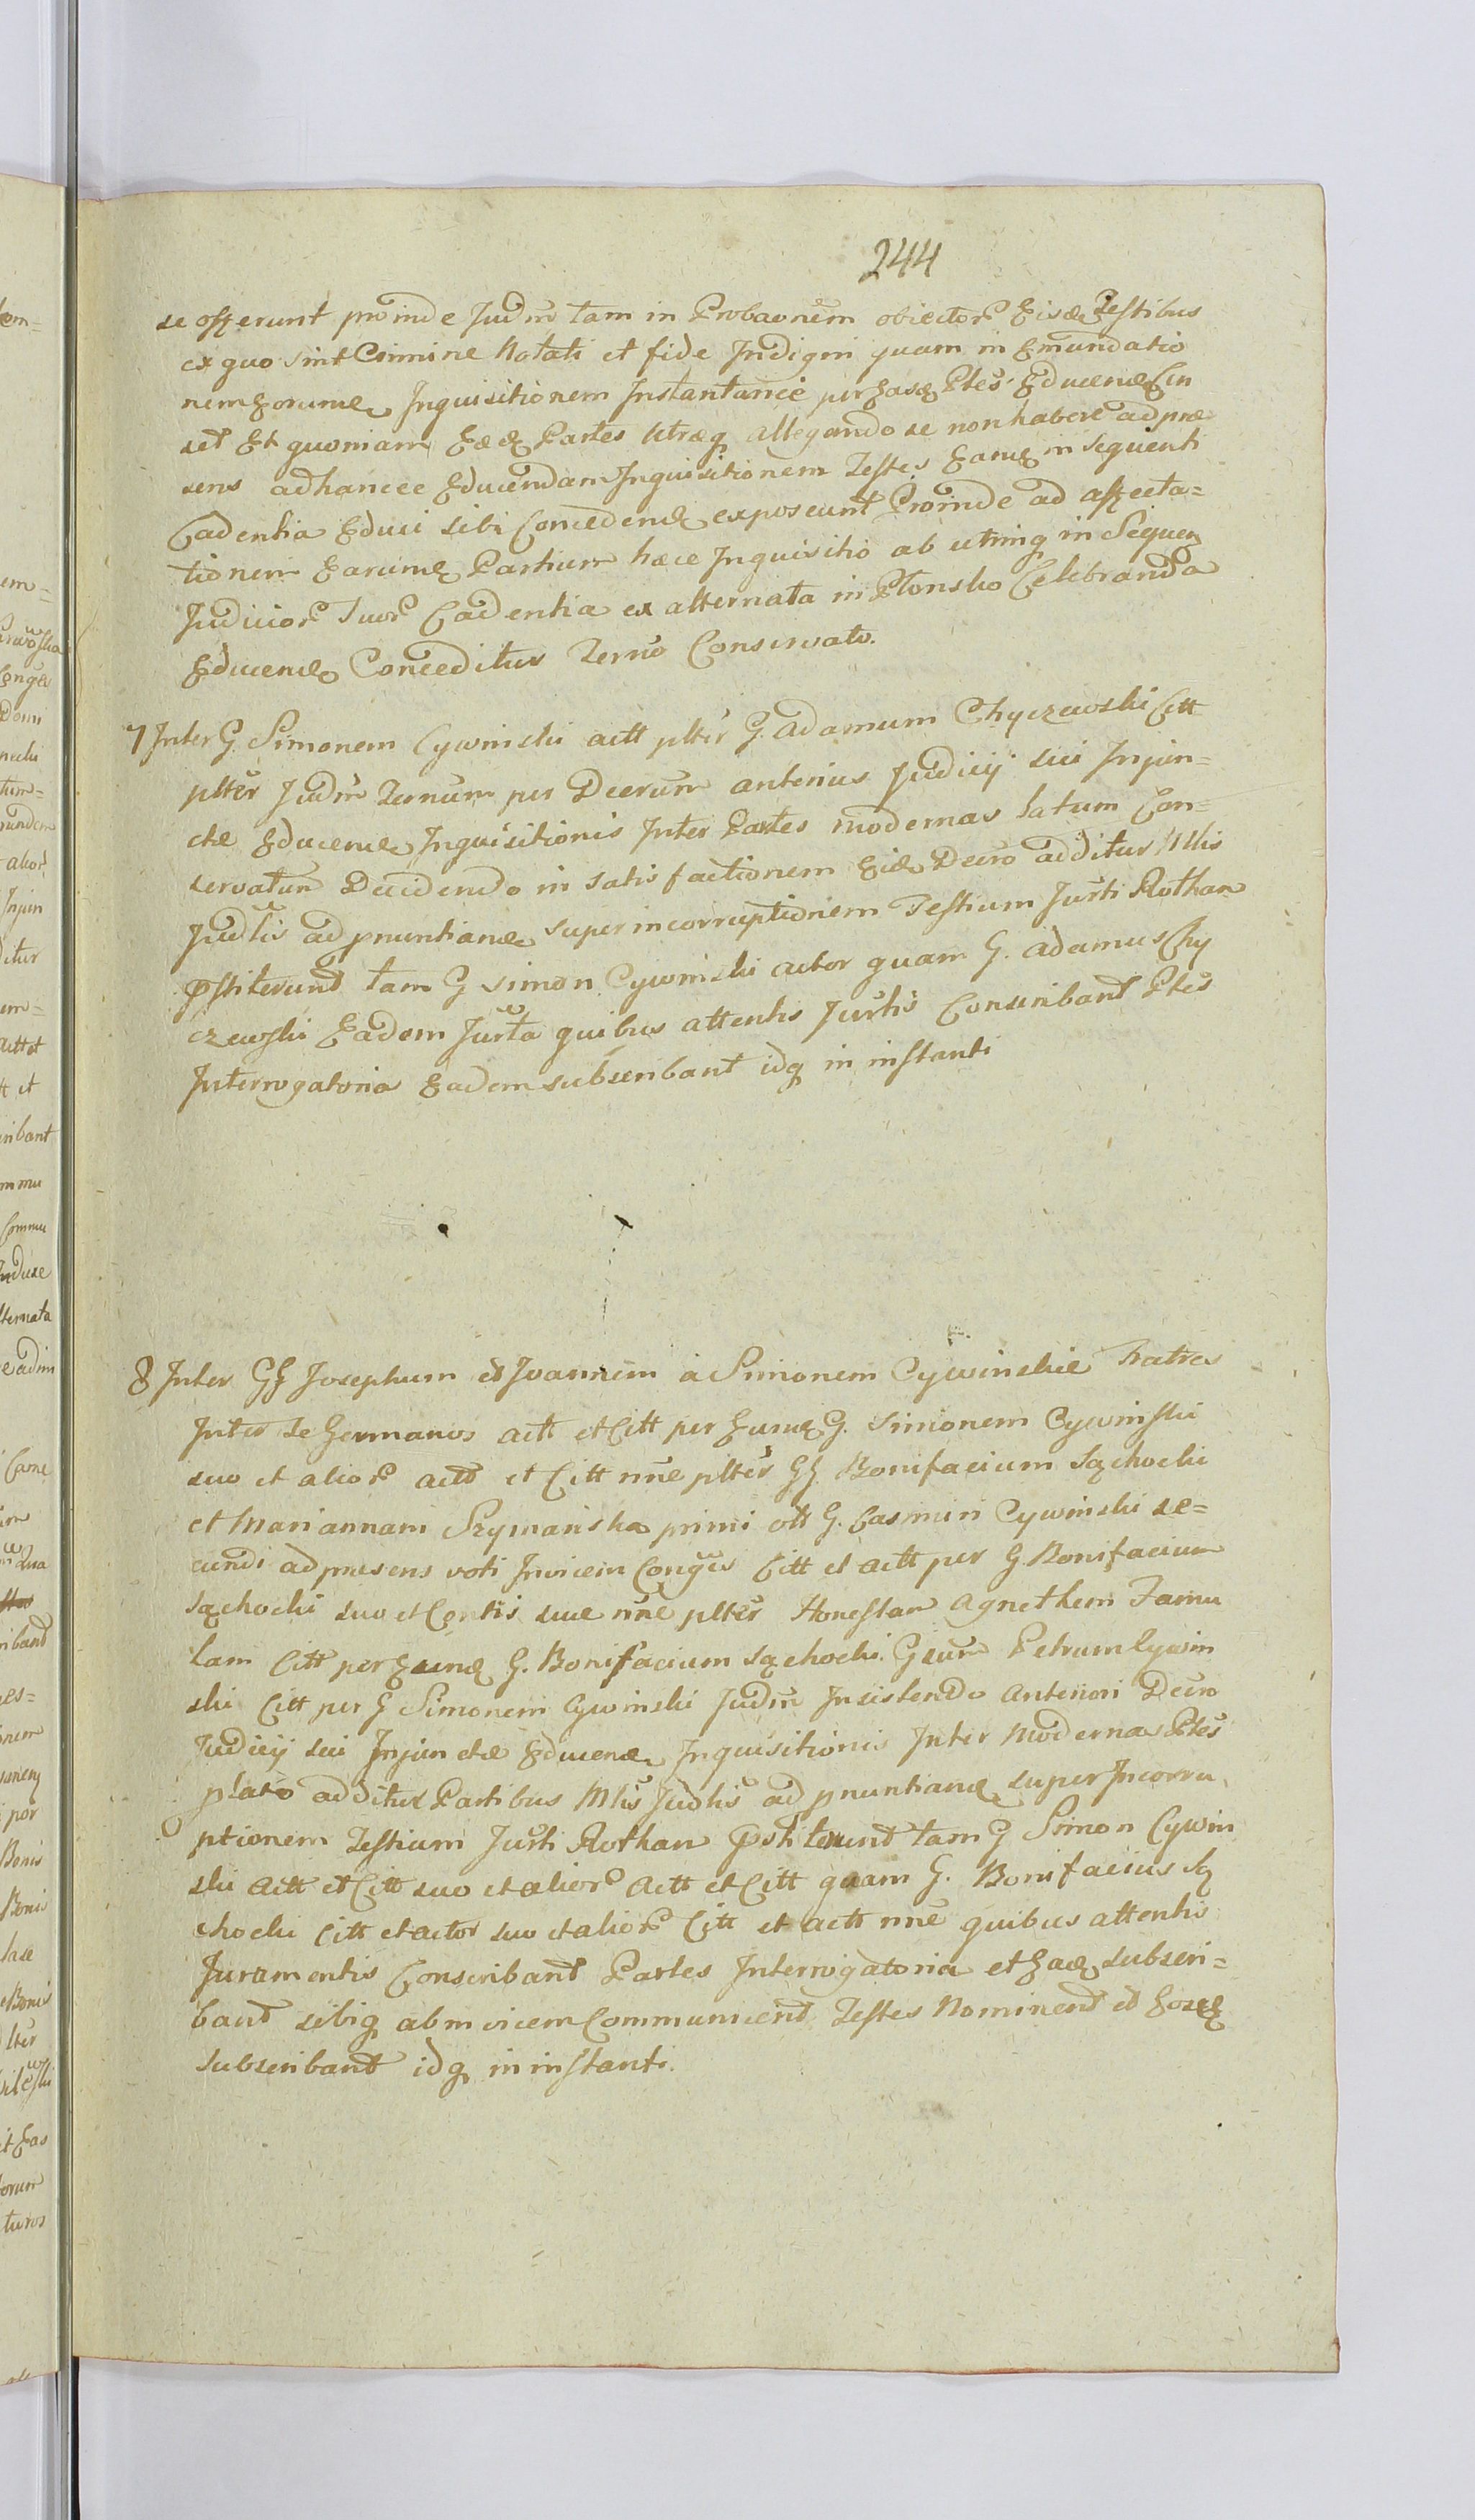 244
se offerunt proinde Judm tam in Probaonem obiector Eisd Testibus
ex quo sint Crimine Notati et fide Indigni quam in Emundatio
nem Eorumd Inquisitionem Instantanee per Easd Ptes Educend Cen
set Et quoniam Eaed Partes Utraeq allegando se non habere ad prae
sens ad hancce Educendam Inquisitionem Testes Eamd in sequenti
Cadentia Educi sibi Concedend exposcunt Proinde ad affecta=
tionem Earumd Partium haece Inquisitio ab utrinq in Sequen
Judicior Suor Cadentia ex alternata in Plonsko Celebranda
Educend Conceditur Termo Conservato.
7 Inter G. Simonem Cywinski actt plter G. Adamum Chyczewski Citt
plter Judm Termum per Decrum anterius Judicij sui Injun=
ctae Educend Inquisitionis Inter Partes modernas latum Con=
servatum Decidendo in satisfactionem Eid Decro additur Mlis
Judlis ad pnuntiand super incorruptionem Testium Jurti Rothan
pstiterunt tam G Simon Cywinski actor quam G. Adamus Chy
czewski Eadem Jurta quibus attentis Jurtis Conscribant Ptes
Interrogatoria Eadem subscribant idq in instanti
8 Inter GG Josephum et Joannem a Simonem Cywinskie Fratres
Inter se Germanos actt et Citt per Eund G. Simonem Cywinski
suo et alior actt et Citt nne plter GG Bonifacium Sąchocki
et Mariannam Szymanska primi olt G. Casimiri Cywinski se=
cundi ad praesens voti Invicem Conges Citt et actt per G. Bonifacium
Sąchocki suo et Contis suae nne plter Honestam Agnethem Famu
lam Citt per Eund G. Bonifacium Sąchocki Gsum Petrum Cywin
ski Citt per G Simonem Cywinski Judm Insistendo Anteriori Decro
Judicij sui Injunctae Educend Inquisitionis Inter Modernas Ptes
plato additur Partibus Mlis Judlis ad pnuntiand super Incorru
ptionem Testium Jurti Rothan pstiterunt tam G Simon Cywin
ski Actt et Citt suo et alior Actt et Citt quam G. Bonifacius Są
chocki Citt et actor suo et alior Citt et actt nne quibus attentis
Juramentis Conscribant Partes Interrogatoria et Ead subscri=
bant sibiq ab invicem Communicent Testes Nominent et Eosd
subscribant idq in instanti.